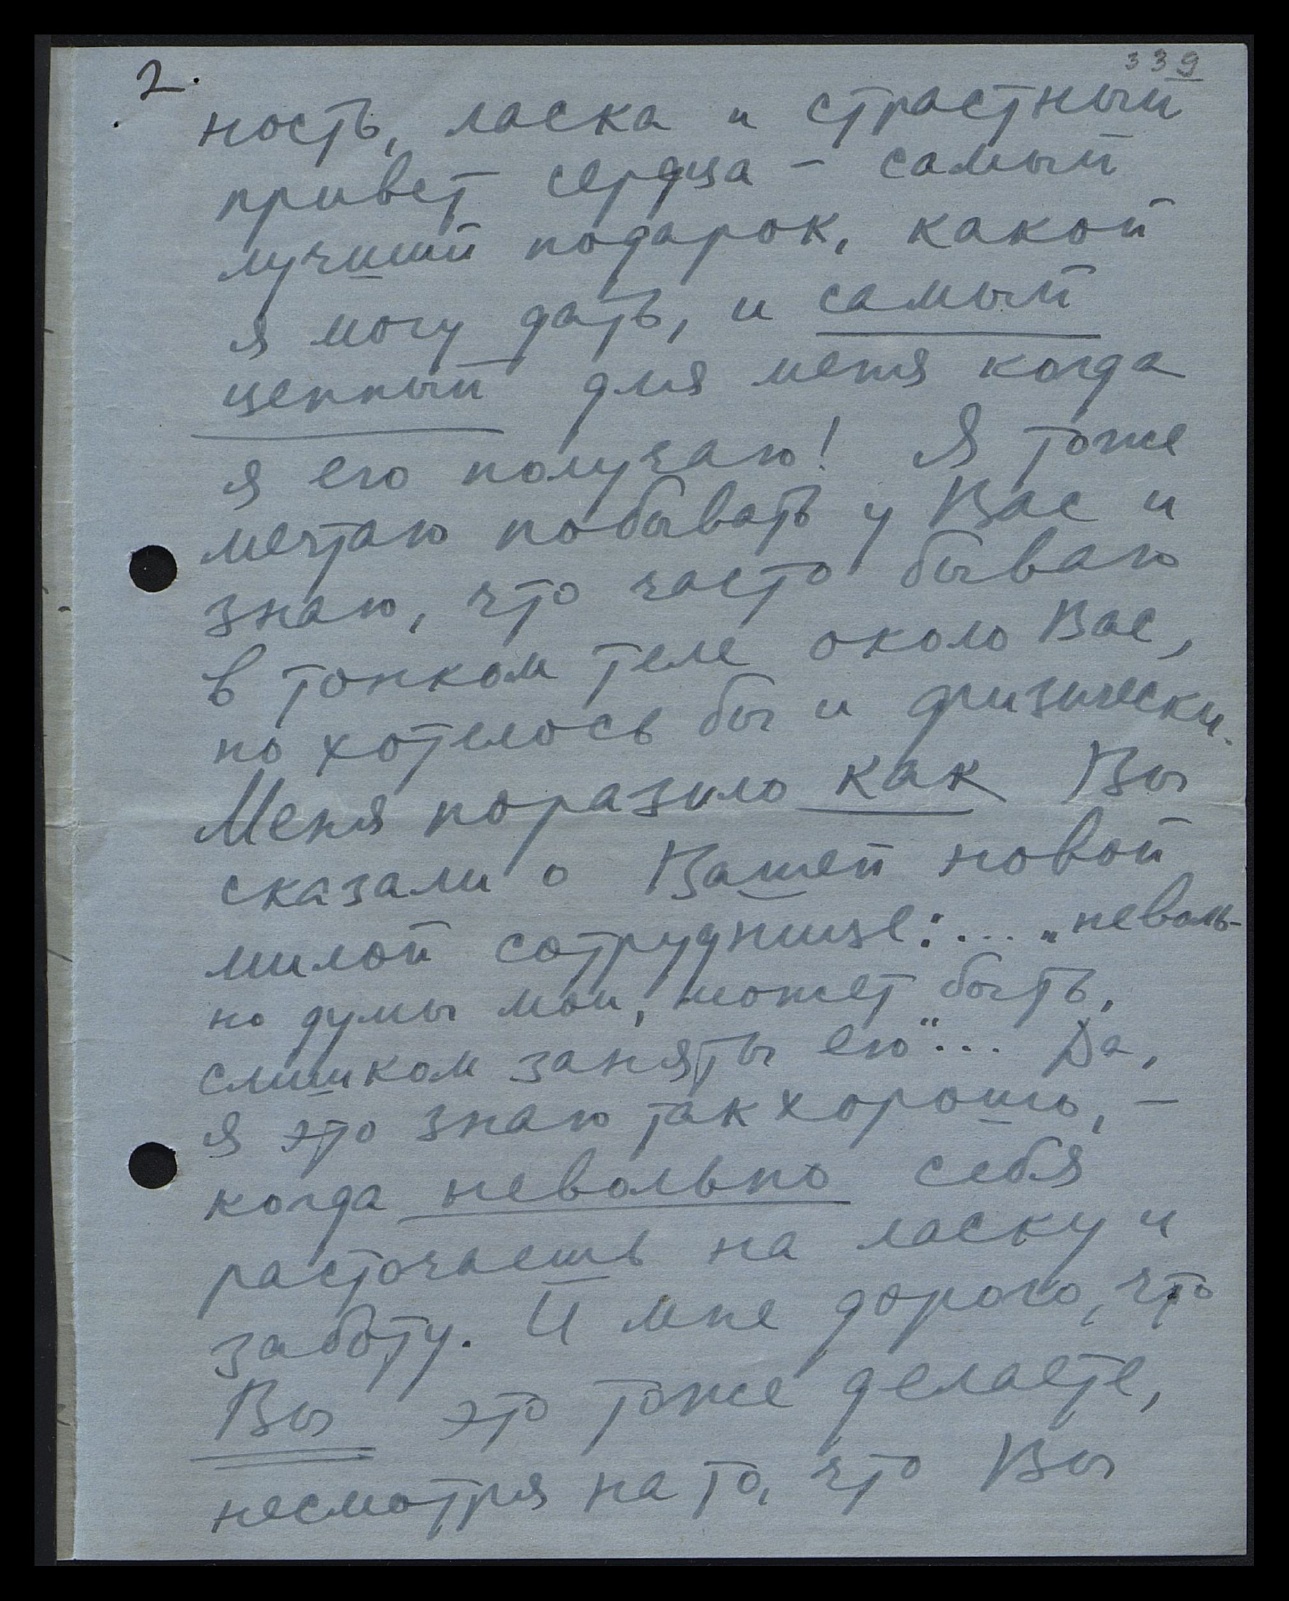 2.
339
ность, ласка и страстный
привет сердца – самый
лучший подарок, какой
я могу дать, и самый
ценный для меня когда
я его получаю! Я тоже
мечтаю побывать у Вас и
знаю, что часто бываю
в тонком теле около Вас,
но хотелось бы и физически.
Меня поразило как Вы
сказали о Вашей новой
милой сотруднице:... „неволь-
но думы мои, может быть,
слишком заняты ею"... Да,
я это знаю так хорошо, –
когда невольно себя
расточаешь на ласку и
заботу. И мне дорого, что
Вы это тоже делаете,
несмотря на то, что Вы